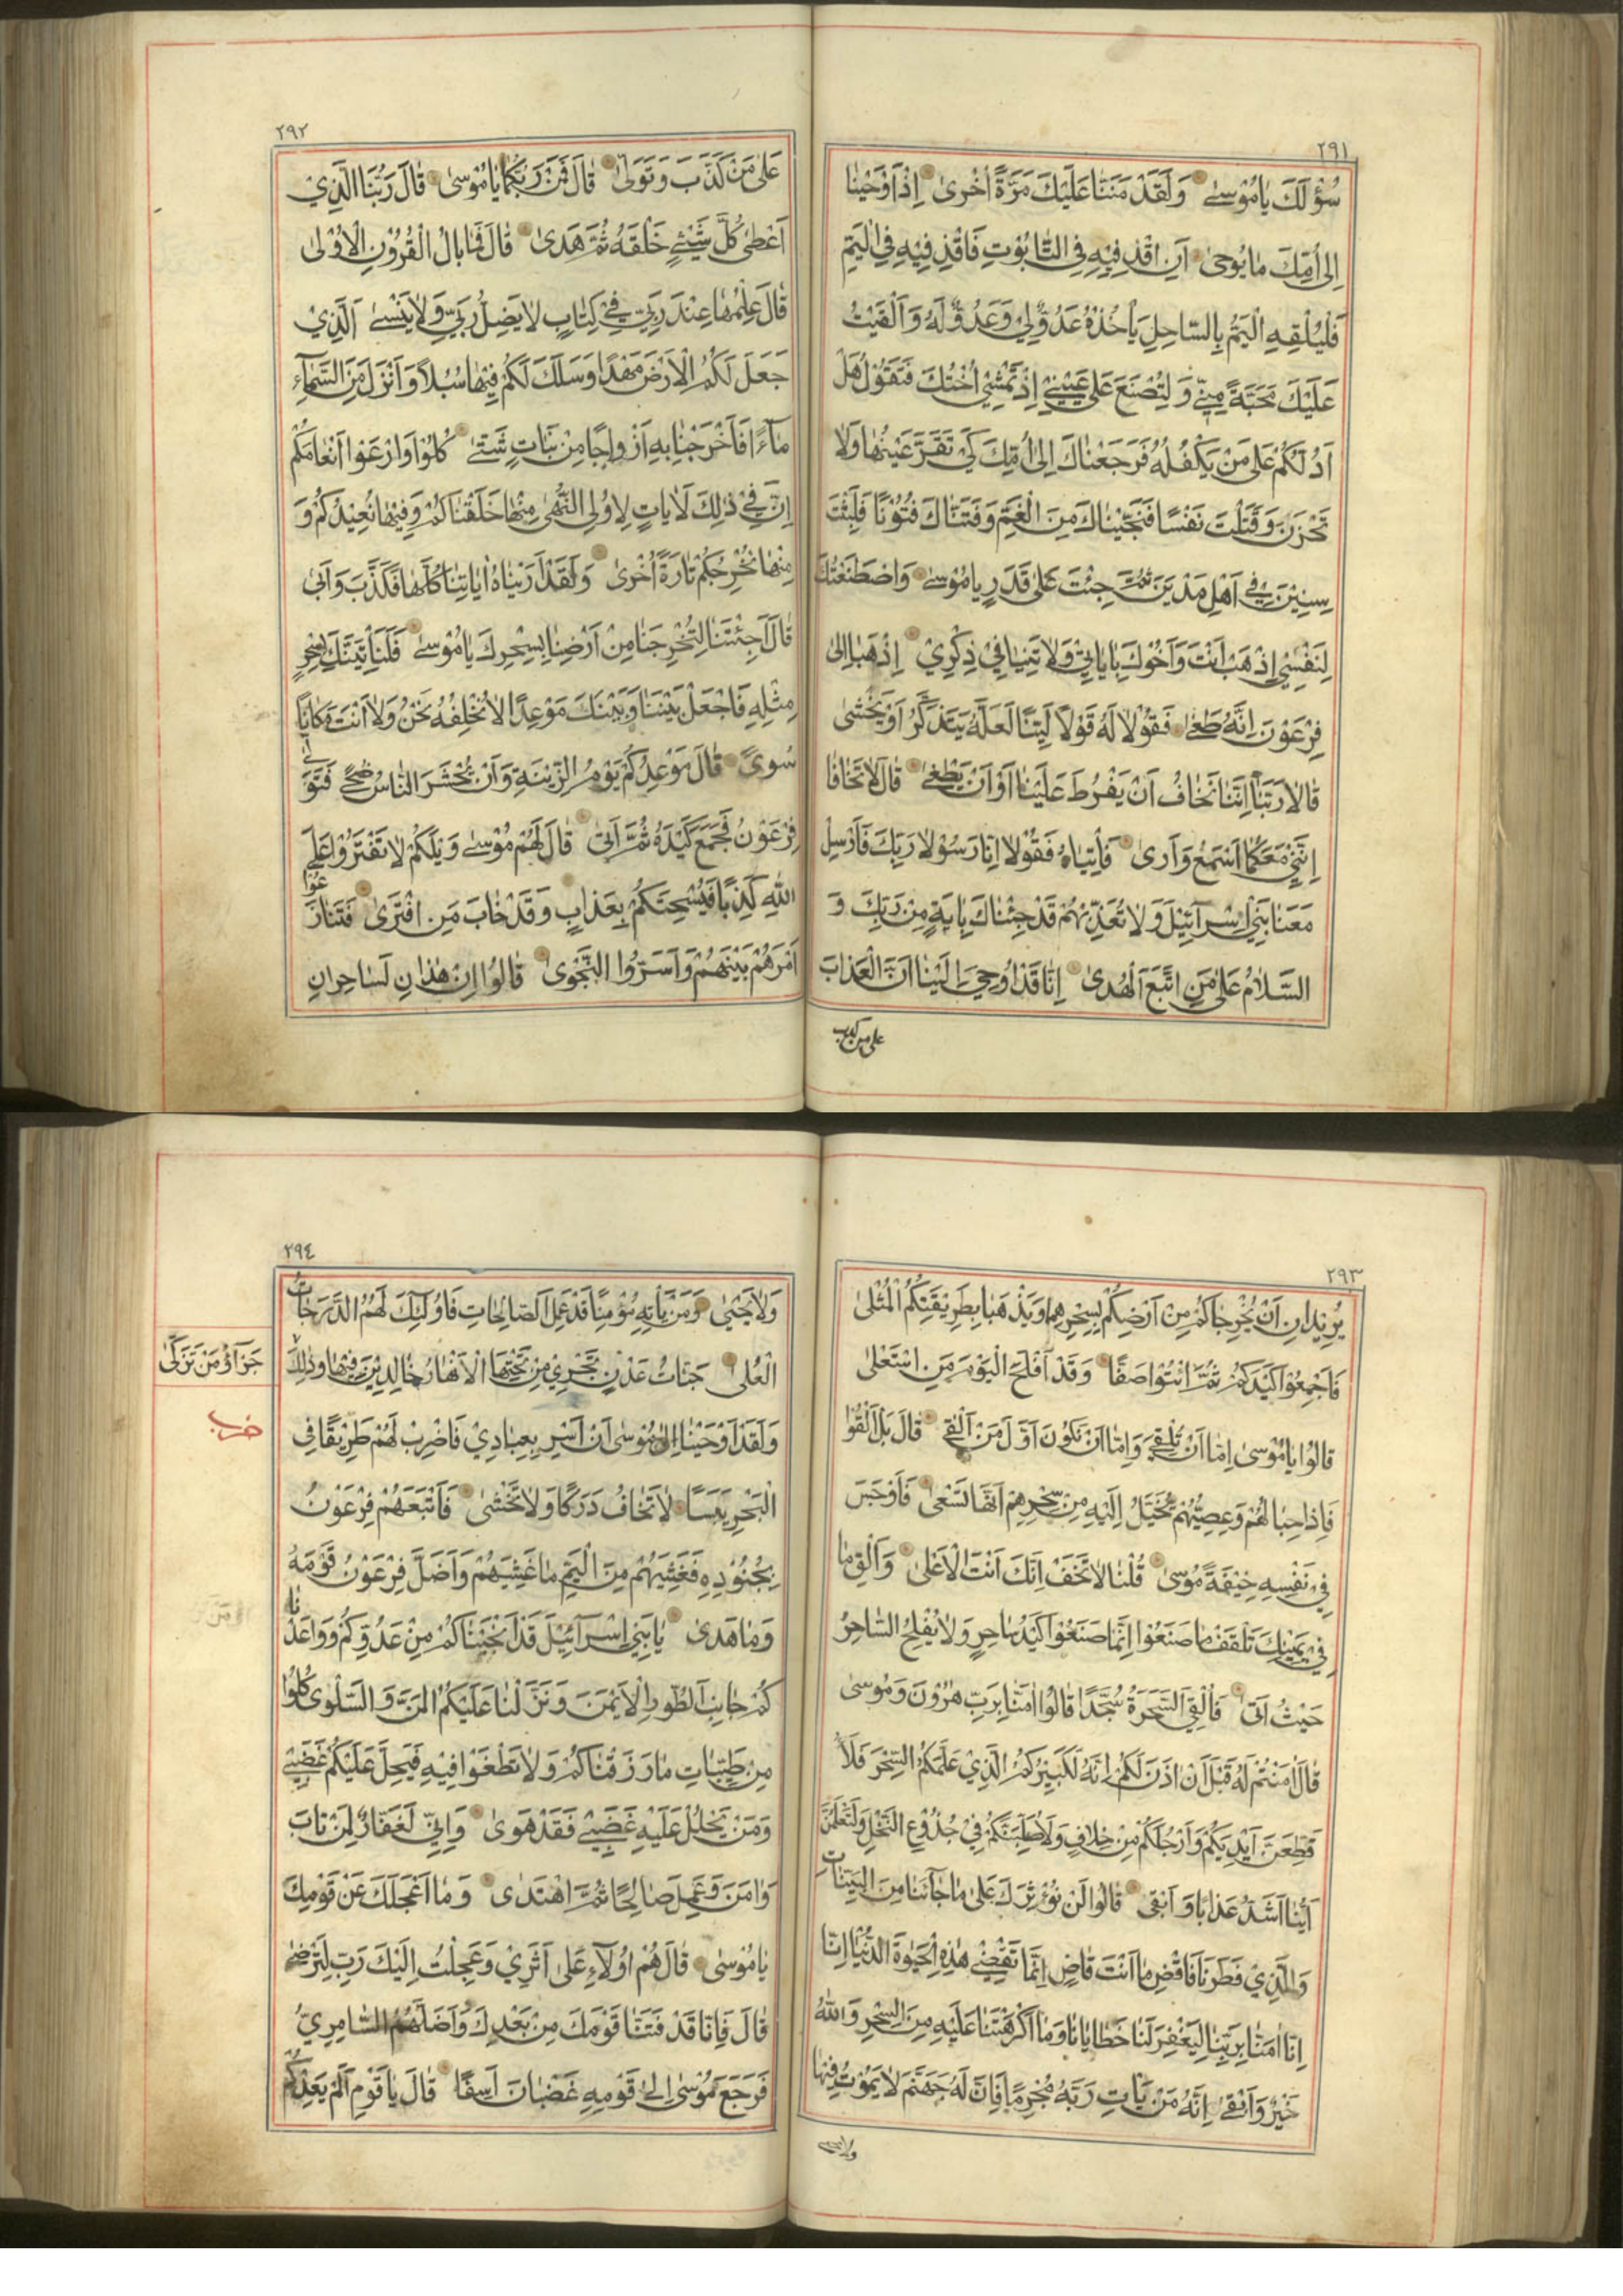 ٢٩١
سُؤْلَكَ يَامُوْسىٰ وَلَقَدْ مَنَنَّا عَلَيْكَ مَرَّةً اُخْرىٰ اِذْ اَوْحَيْنٰا
اِلىٰ اُمِّكَ مٰا يُوحىٰ اَنِ اقْذِفِيْهِ فِى التّٰابُوْتِ فَاقْذِفِيْهِ فِى الْيَمِّ
فَلْيُلْقِهِ الْيَمُّ بِالسّٰاحِلِ يَأْخُذْهُ عَدُوٌّ لِيْ وَعَدُوٌّ لَهُ وَاَلْقَيْتُ
عَلَيْكَ مَحَبَّةً مِنِّيْ وَلِتُصْنَعَ عَلىٰ عَيْنِيْ اِذْ تَمْشِيْ اُخْتُكَ فَتَقُوْلُ هَلْ
اَدُلُّكُمْ عَلىٰ مَنْ يَكْفُلُهُ فَرَجَعْنٰاكَ اِلىٰ اُمِّكَ كَيْ تَقَرَّ عَيْنُهٰا وَلاٰ
تَحْزَنَ وَقَتَلْتَ نَفْسًا فَنَجَّيْنٰاكَ مِنَ الْغَمِّ وَفَتَنّٰاكَ فُتُوْنًا فَلَبِثْتَ
سِنِيْنَ فِيْ اَهْلِ مَدْيَنَ ثُمَّ جِئْتَ عَلىٰ قَدَرٍ يٰامُوْسىٰ وَاصْطَنَعْتُكَ
لِنَفْسِيْ اِذْهَبْ اَنْتَ وَاَخُوْكَ بِاٰيٰاتِيْ وَلاٰ تَنِيٰا فِيْ ذِكْرِيْ اِذْهَبٰا اِلىٰ
فِرْعَوْنَ اِنَّهُ طَغىٰ فَقُوْلاٰ لَهُ قَوْلاً لَيِّنًا لَعَلَّهُ يَتَذَكَّرُ اَوْ يَخْشىٰ
قٰالاٰ رَبَّنٰا اِنَّنٰا نَخٰافُ اَنْ يَفْرُطَ عَلَيْنٰا اَوْ اَنْ يَطْغىٰ قٰالَ لاٰ تَخٰافٰا
اِنَّنِيْ مَعَكُمٰا اَسْمَعُ وَاَرىٰ فَأْتِيٰاهُ فَقُوْلاٰ اِنّٰا رَسُوْلاٰ رَبِّكَ فَاَرْسِلْ
مَعَنٰا بَنِيْ اِسْرٰٓائِيْلَ وَلاٰ تُعَذِّبْهُمْ قَدْ جِئْنٰاكَ بِاٰيَةٍ مِنْ رَبِّكَ وَ
السَّلاٰمُ عَلىٰ مَنِ اتَّبَعَ الْهُدىٰ اِنّٰا قَدْ اُوحِيَ اِلَيْنٰا اَنَّ الْعَذٰابَ
على من كذب
٢٩٢
عَلىٰ مَنْ كَذَّبَ وَتَوَلّىٰ قٰالَ فَمَنْ رَبُّكُمٰا يٰامُوْسىٰ قٰالَ رَبُّنَا الَّذِيْ
اَعْطىٰ كُلَّ شَيْئٍ خَلْقَهُ ثُمَّ هَدىٰ قٰالَ فَمٰا بٰالُ الْقُرُوْنِ الْاُوْلىٰ
قٰالَ عِلْمُهٰا عِنْدَ رَبِّيْ فِيْ كِتٰابٍ لاٰ يَضِلُّ رَبِّيْ وَلاٰ يَنْسىٰ اَلَّذِيْ
جَعَلَ لَكُمُ الْاَرْضَ مَهْدًا وَسَلَكَ لَكُمْ فِيْهٰا سُبُلاً وَاَنْزَلَ مِنَ السَّمٰآءِ
مٰآءً فَاَخْرَجْنٰا بِهِ اَزْوٰاجًا مِنْ نَبٰاتٍ شَتّىٰ كُلُوْا وَارْعَوْا اَنْعٰامَكُمْ
اِنَّ فِيْ ذٰلِكَ لَاٰيٰاتٍ لِاُولِى النُّهىٰ مِنْهٰا خَلَقْنٰاكُمْ وَفِيْهٰا نُعِيْدُكُمْ وَ
مِنْهٰا نُخْرِجُكُمْ تٰارَةً اُخْرىٰ وَلَقَدْ اَرَيْنٰاهُ اٰيٰاتِنٰا كُلَّهٰا فَكَذَّبَ وَاَبىٰ
قٰالَ اَجِئْتَنٰا لِتُخْرِجَنٰا مِنْ اَرْضِنٰا بِسِحْرِكَ يٰامُوْسىٰ فَلَنَأْتِيَنَّكَ بِسِحْرٍ
مِثْلِهِ فَاجْعَلْ بَيْنَنٰا وَبَيْنَكَ مَوْعِدًا لاٰ نُخْلِفُهُ نَحْنُ وَلاٰ اَنْتَ مَكٰانًا
سُوىً قٰالَ مَوْعِدُكُمْ يَوْمُ الزِّيْنَةِ وَاَنْ يُحْشَرَ النّٰاسُ ضُحىً فَتَوَلّىٰ
فِرْعَوْنُ فَجَمَعَ كَيْدَهُ ثُمَّ اَتىٰ قٰالَ لَهُمْ مُوْسىٰ وَيْلَكُمْ لاٰ تَفْتَرُوْا عَلَى
اللّٰهِ كَذِبًا فَيُسْحِتَكُمْ بِعَذٰابٍ وَقَدْ خٰابَ مَنِ افْتَرىٰ فَتَنٰازَعُوْا
اَمْرَهُمْ بَيْنَهُمْ وَاَسَرُّوا النَّجْوىٰ قٰالُوْا اِنْ هٰذٰانِ لَسٰاحِرٰانِ
٢٩٣
يُرِيْدٰانِ اَنْ يُخْرِجٰاكُمْ مِنْ اَرْضِكُمْ بِسِحْرِهِمٰا وَيَذْهَبٰا بِطَرِيْقَتِكُمُ الْمُثْلىٰ
فَاَجْمِعُوْا كَيْدَكُمْ ثُمَّ ائْتُوْا صَفًّا وَقَدْ اَفْلَحَ الْيَوْمَ مَنِ اسْتَعْلىٰ
قٰالُوْا يٰامُوْسىٰ اِمّٰا اَنْ تُلْقِيَ وَاِمّٰا اَنْ نَكُوْنَ اَوَّلَ مَنْ اَلْقىٰ قٰالَ بَلْ اَلْقُوْا
فَاِذٰا حِبٰالُهُمْ وَعِصِيُّهُمْ يُخَيَّلُ اِلَيْهِ مِنْ سِحْرِهِمْ اَنَّهٰا تَسْعىٰ فَاَوْجَسَ
فِيْ نَفْسِهِ خِيْفَةً مُوْسىٰ قُلْنٰا لاٰ تَخَفْ اِنَّكَ اَنْتَ الْاَعْلىٰ وَاَلْقِ مٰا
فِيْ يَمِيْنِكَ تَلْقَفْ مٰا صَنَعُوْا اِنَّمٰا صَنَعُوْا كَيْدُ سٰاحِرٍ وَلاٰ يُفْلِحُ السّٰاحِرُ
حَيْثُ اَتىٰ فَاُلْقِيَ السَّحَرَةُ سُجَّدًا قٰالُوْا اٰمَنّٰا بِرَبِّ هٰرُوْنَ وَمُوْسىٰ
قٰالَ اٰمَنْتُمْ لَهُ قَبْلَ اَنْ اٰذَنَ لَكُمْ اِنَّهُ لَكَبِيْرُكُمُ الَّذِيْ عَلَّمَكُمُ السِّحْرَ فَلَاُ
قَطِّعَنَّ اَيْدِيَكُمْ وَاَرْجُلَكُمْ مِنْ خِلاٰفٍ وَلَاُصَلِّبَنَّكُمْ فِيْ جُذُوْعِ النَّخْلِ وَلَتَعْلَمُنَّ
اَيُّنٰا اَشَدُّ عَذٰابًا وَاَبْقىٰ قٰالُوْا لَنْ نُؤْثِرَكَ عَلىٰ مٰا جٰآئَنٰا مِنَ الْبَيِّنٰاتِ
وَالَّذِيْ فَطَرَنٰا فَاقْضِ مٰا اَنْتَ قٰاضٍ اِنَّمٰا تَقْضِيْ هٰذِهِ الْحَيٰوةَ الدُّنْيٰا اِنّٰا
اِنّٰا اٰمَنّٰا بِرَبِّنٰا لِيَغْفِرَ لَنٰا خَطٰايٰانٰا وَمٰا اَكْرَهْتَنٰا عَلَيْهِ مِنَ السِّحْرِ وَاللّٰهُ
خَيْرٌ وَاَبْقىٰ اِنَّهُ مَنْ يَأْتِ رَبَّهُ مُجْرِمًا فَاِنَّ لَهُ جَهَنَّمَ لاٰ يَمُوْتُ فِيْهٰا
٢٩٤
وَلاٰ يَحْيىٰ وَمَنْ يَأْتِهِ مُؤْمِنًا قَدْ عَمِلَ الصّٰالِحٰاتِ فَاُولٰئِكَ لَهُمُ الدَّرَجٰاتُ
الْعُلىٰ جَنّٰاتُ عَدْنٍ تَجْرِيْ مِنْ تَحْتِهَا الْاَنْهٰارُ خٰالِدِيْنَ فِيْهٰا وَذٰلِكَ
جَزٰآؤُ مَنْ تَزَكّىٰ
وَلَقَدْ اَوْحَيْنٰا اِلىٰ مُوْسىٰ اَنْ اَسْرِ بِعِبٰادِيْ فَاضْرِبْ لَهُمْ طَرِيْقًا فِي
حزب
الْبَحْرِ يَبَسًا لاٰ تَخٰافُ دَرَكًا وَلاٰ تَخْشىٰ فَاَتْبَعَهُمْ فِرْعَوْنُ
بِجُنُوْدِهِ فَغَشِيَهُمْ مِنَ الْيَمِّ مٰا غَشِيَهُمْ وَاَضَلَّ فِرْعَوْنُ قَوْمَهُ
وَمٰا هَدىٰ يٰا بَنِيْ اِسْرٰآئِيْلَ قَدْ اَنْجَيْنٰاكُمْ مِنْ عَدُوِّكُمْ وَوٰاعَدْنٰا
كُمْ جٰانِبَ الطُّوْرِ الْاَيْمَنَ وَنَزَّلْنٰا عَلَيْكُمُ الْمَنَّ وَالسَّلْوىٰ كُلُوْا
مِنْ طَيِّبٰاتِ مٰا رَزَقْنٰاكُمْ وَلاٰ تَطْغَوْا فِيْهِ فَيَحِلَّ عَلَيْكُمْ غَضَبِيْ
وَمَنْ يَحْلِلْ عَلَيْهِ غَضَبِيْ فَقَدْ هَوىٰ وَاِنِّيْ لَغَفّٰارٌ لِمَنْ تٰابَ
وَاٰمَنَ وَعَمِلَ صٰالِحًا ثُمَّ اهْتَدىٰ وَمٰا اَعْجَلَكَ عَنْ قَوْمِكَ
يٰامُوْسىٰ قٰالَ هُمْ اُولاٰءِ عَلىٰ اَثَرِيْ وَعَجِلْتُ اِلَيْكَ رَبِّ لِتَرْضىٰ
قٰالَ فَاِنّٰا قَدْ فَتَنّٰا قَوْمَكَ مِنْ بَعْدِكَ وَاَضَلَّهُمُ السّٰامِرِيُّ
فَرَجَعَ مُوْسىٰ اِلىٰ قَوْمِهِ غَضْبٰانَ اَسِفًا قٰالَ يٰا قَوْمِ اَلَمْ يَعِدْكُمْ